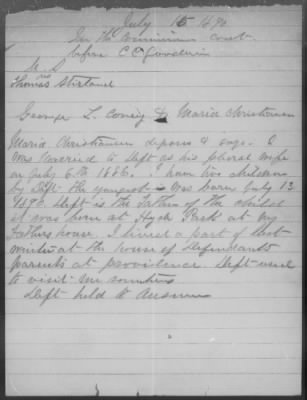 July 15 1890
In the Commissioners Court
before C C Goodwin
U. S
Thomas Stirland
George L. & Maria Christiansen
Maria Christiansen deposes & says. I
was married to Deft as his plural wife
on July 6th 1886. I have two children
by Deft the youngest was born July 13
1890. Deft is the father of the child
it was born at Hyde Park at my
Fathers house. I lived a part of last
winter at the house of Defendants
parents at providence. Deft used
to visit me sometimes
Deft held to Answer